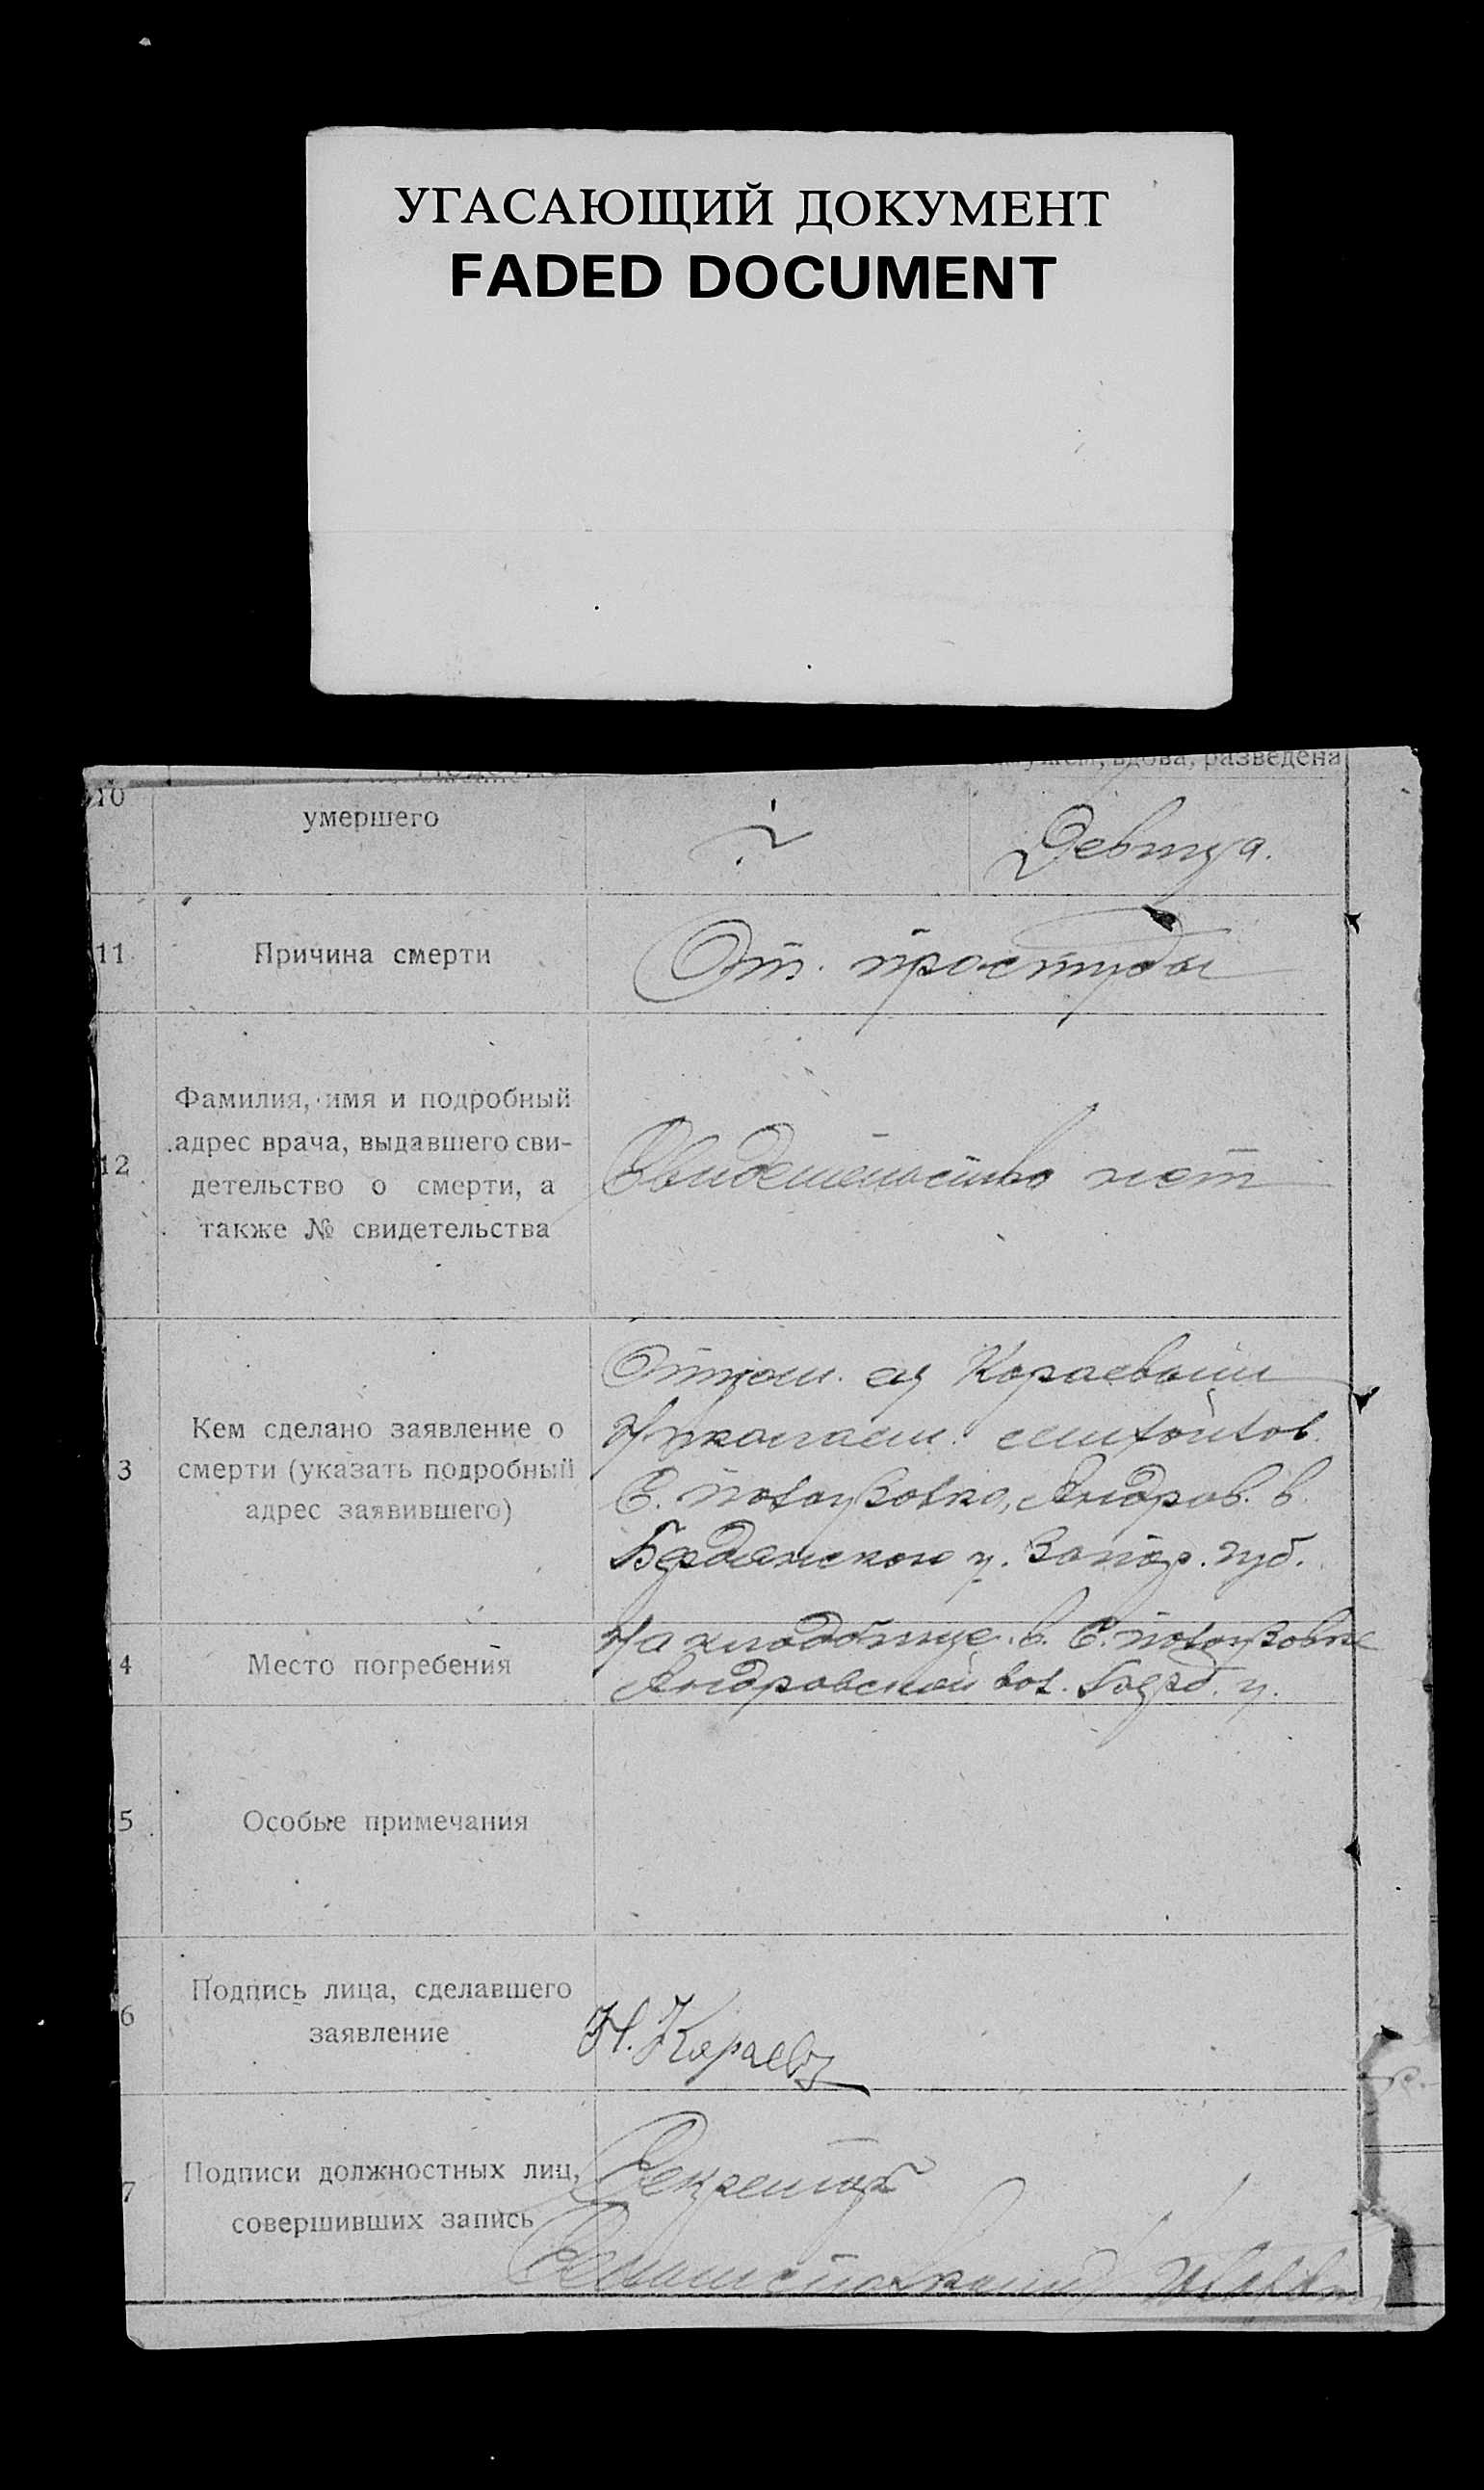 УГАСАЮЩИЙ ДОКУМЕНТ
FADED DOCUMENT
вдова, разведена
10
умершего
Девица.
11
Причина смерти
От. простуды
12
Фамилия, имя и подробный
адрес врача, выдавшего сви-
детельство о смерти, а
также № свидетельства
Свидетельство нет
3
Кем сделано заявление о
смерти (указать подробный
адрес заявившего)
Караевым
Николаем.
С. Андров. в.
Бердянского у. Запор. губ.
4
Место погребения
На кладбище. в. С.
Андровской вол. Берд. у.
5
Особые примечания
6
Подпись лица, сделавшего
заявление
Н. Караевъ
7
Подписи должностных лиц,
совершивших запись
Секретар